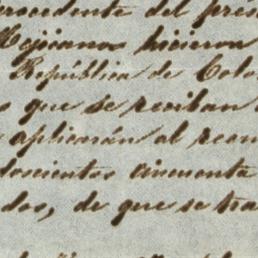 procedente del prés
Mejicanos hicieron
República de Colo
que se reciban
aplicarán al reem
doscientos cincuenta
dos, de que se tra